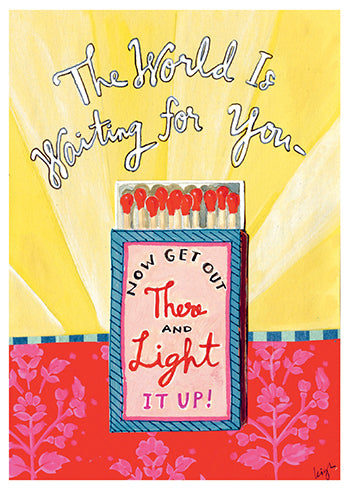 The World Is
Waiting for You-
NOW GET OUT
There
AND
Light
IT UP!